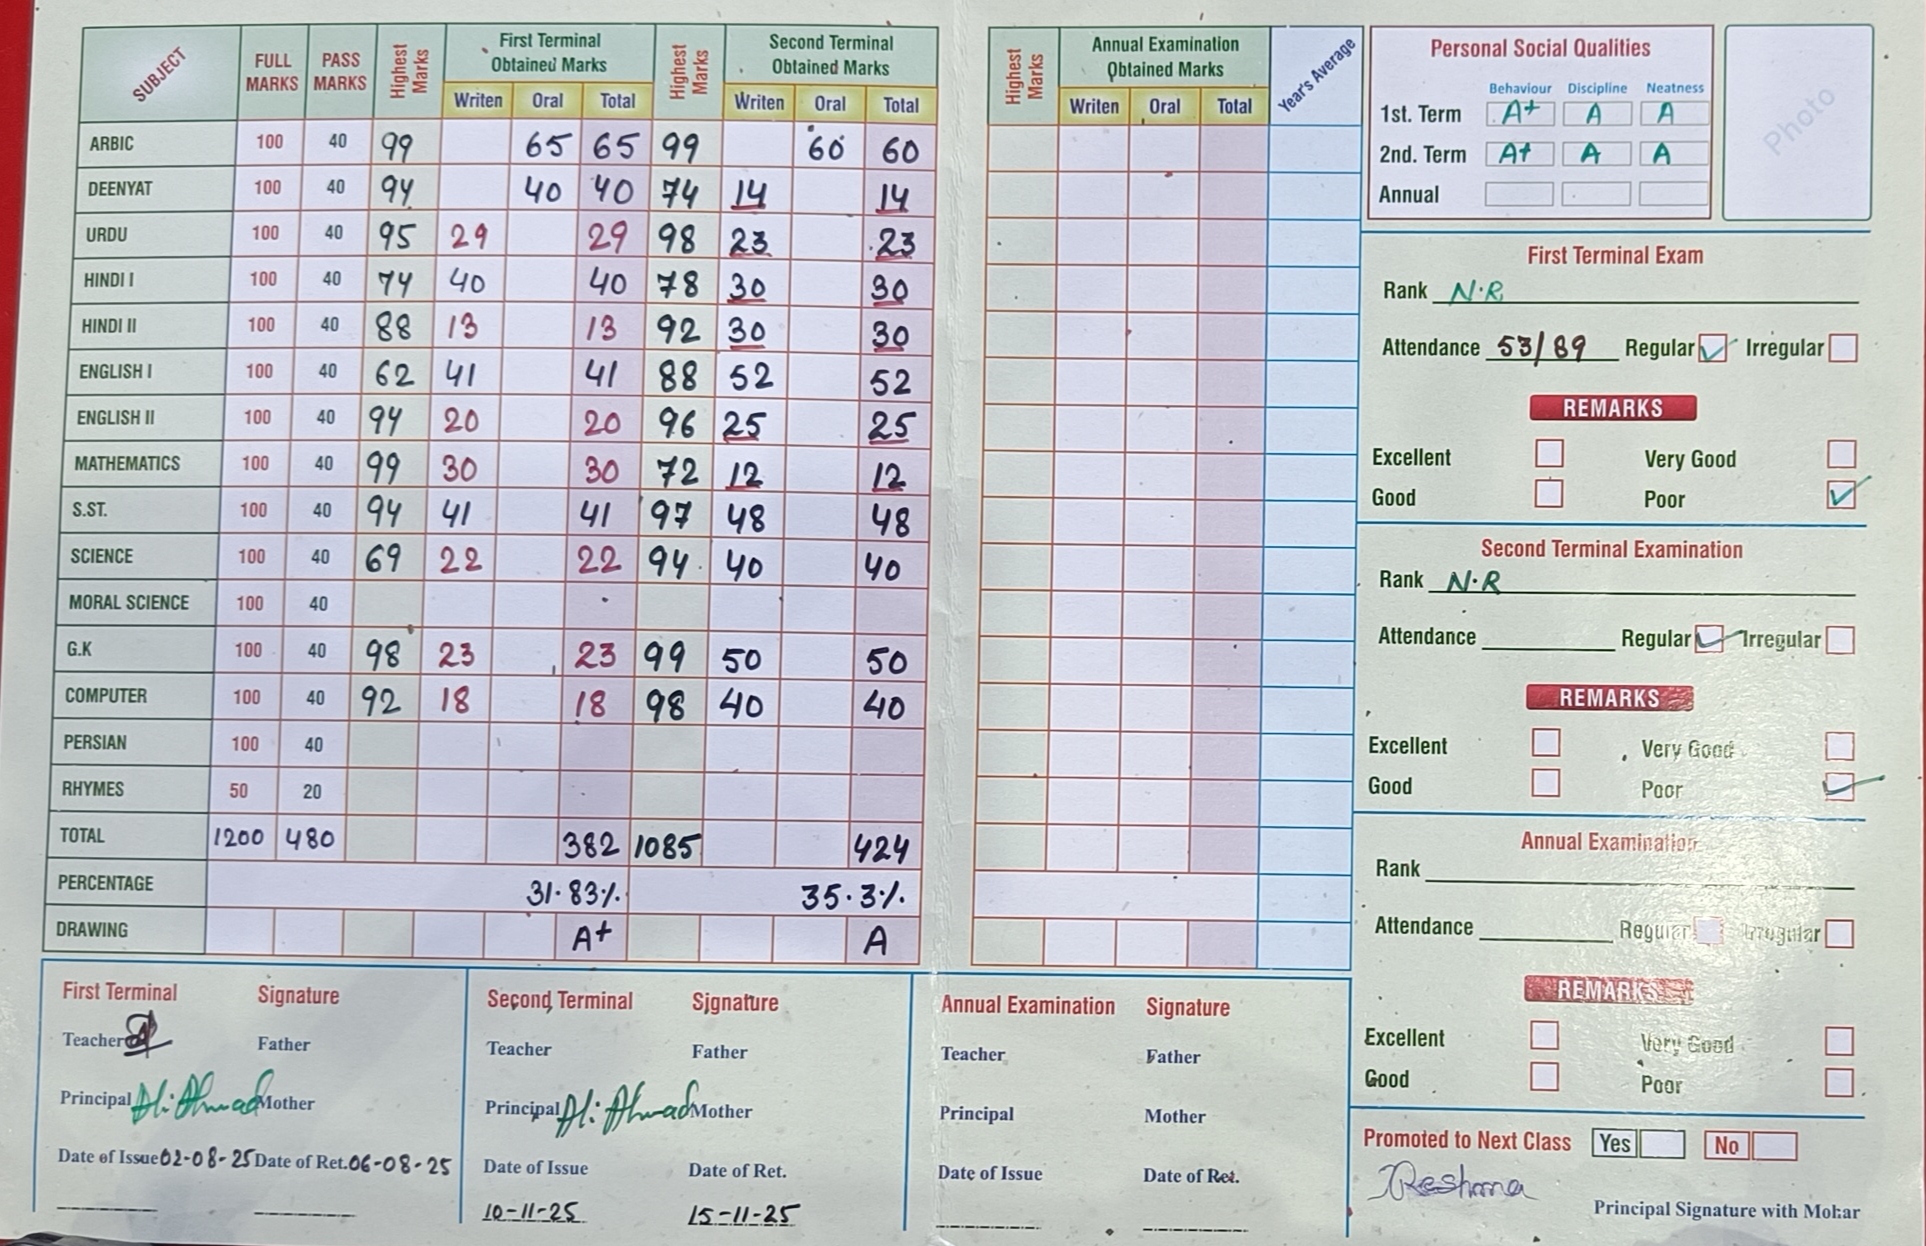 SUBJECT FULL MARKS PASS MARKS Highest Marks First Terminal Obtained Marks Highest Marks Second Terminal Obtained Marks
Writen Oral Total Writen Oral Total
ARBIC 100 40 99 65 65 99 60 60
DEENYAT 100 40 94 40 40 74 14 14
URDU 100 40 95 29 29 98 23 23
HINDI I 100 40 74 40 40 78 30 30
HINDI II 100 40 88 13 13 92 30 30
ENGLISH I 100 40 62 41 41 88 52 52
ENGLISH II 100 40 94 20 20 96 25 25
MATHEMATICS 100 40 99 30 30 72 12 12
S.ST. 100 40 94 41 41 97 48 48
SCIENCE 100 40 69 22 22 94 40 40
MORAL SCIENCE 100 40
G.K 100 40 98 23 23 99 50 50
COMPUTER 100 40 92 18 18 98 40 40
PERSIAN 100 40
RHYMES 50 20
TOTAL 1200 480 382 1085 424
PERCENTAGE 31.83% 35.3%
DRAWING A+ A
Highest Marks Annual Examination Obtained Marks Year's Average
Writen Oral Total
Personal Social Qualities
Behaviour Discipline Neatness
1st. Term A+ A A
2nd. Term A+ A A
Annual
Photo
First Terminal Exam
Rank N.R
Attendance 53/89 Regular Irregular
REMARKS
Excellent Very Good
Good Poor
Second Terminal Examination
Rank N.R
Attendance Regular Irregular
REMARKS
Excellent Very Good
Good Poor
Annual Examination
Rank
Attendance Regular Irregular
REMARKS
Excellent Very Good
Good Poor
Promoted to Next Class Yes No
Reshma
Principal Signature with Mohar
First Terminal Signature
Teacher Father
Principal Ali Ahmad Mother
Date of Issue 02-08-25 Date of Ret. 06-08-25
Second Terminal Signature
Teacher Father
Principal Ali Ahmad Mother
Date of Issue Date of Ret.
10-11-25 15-11-25
Annual Examination Signature
Teacher Father
Principal Mother
Date of Issue Date of Ret.